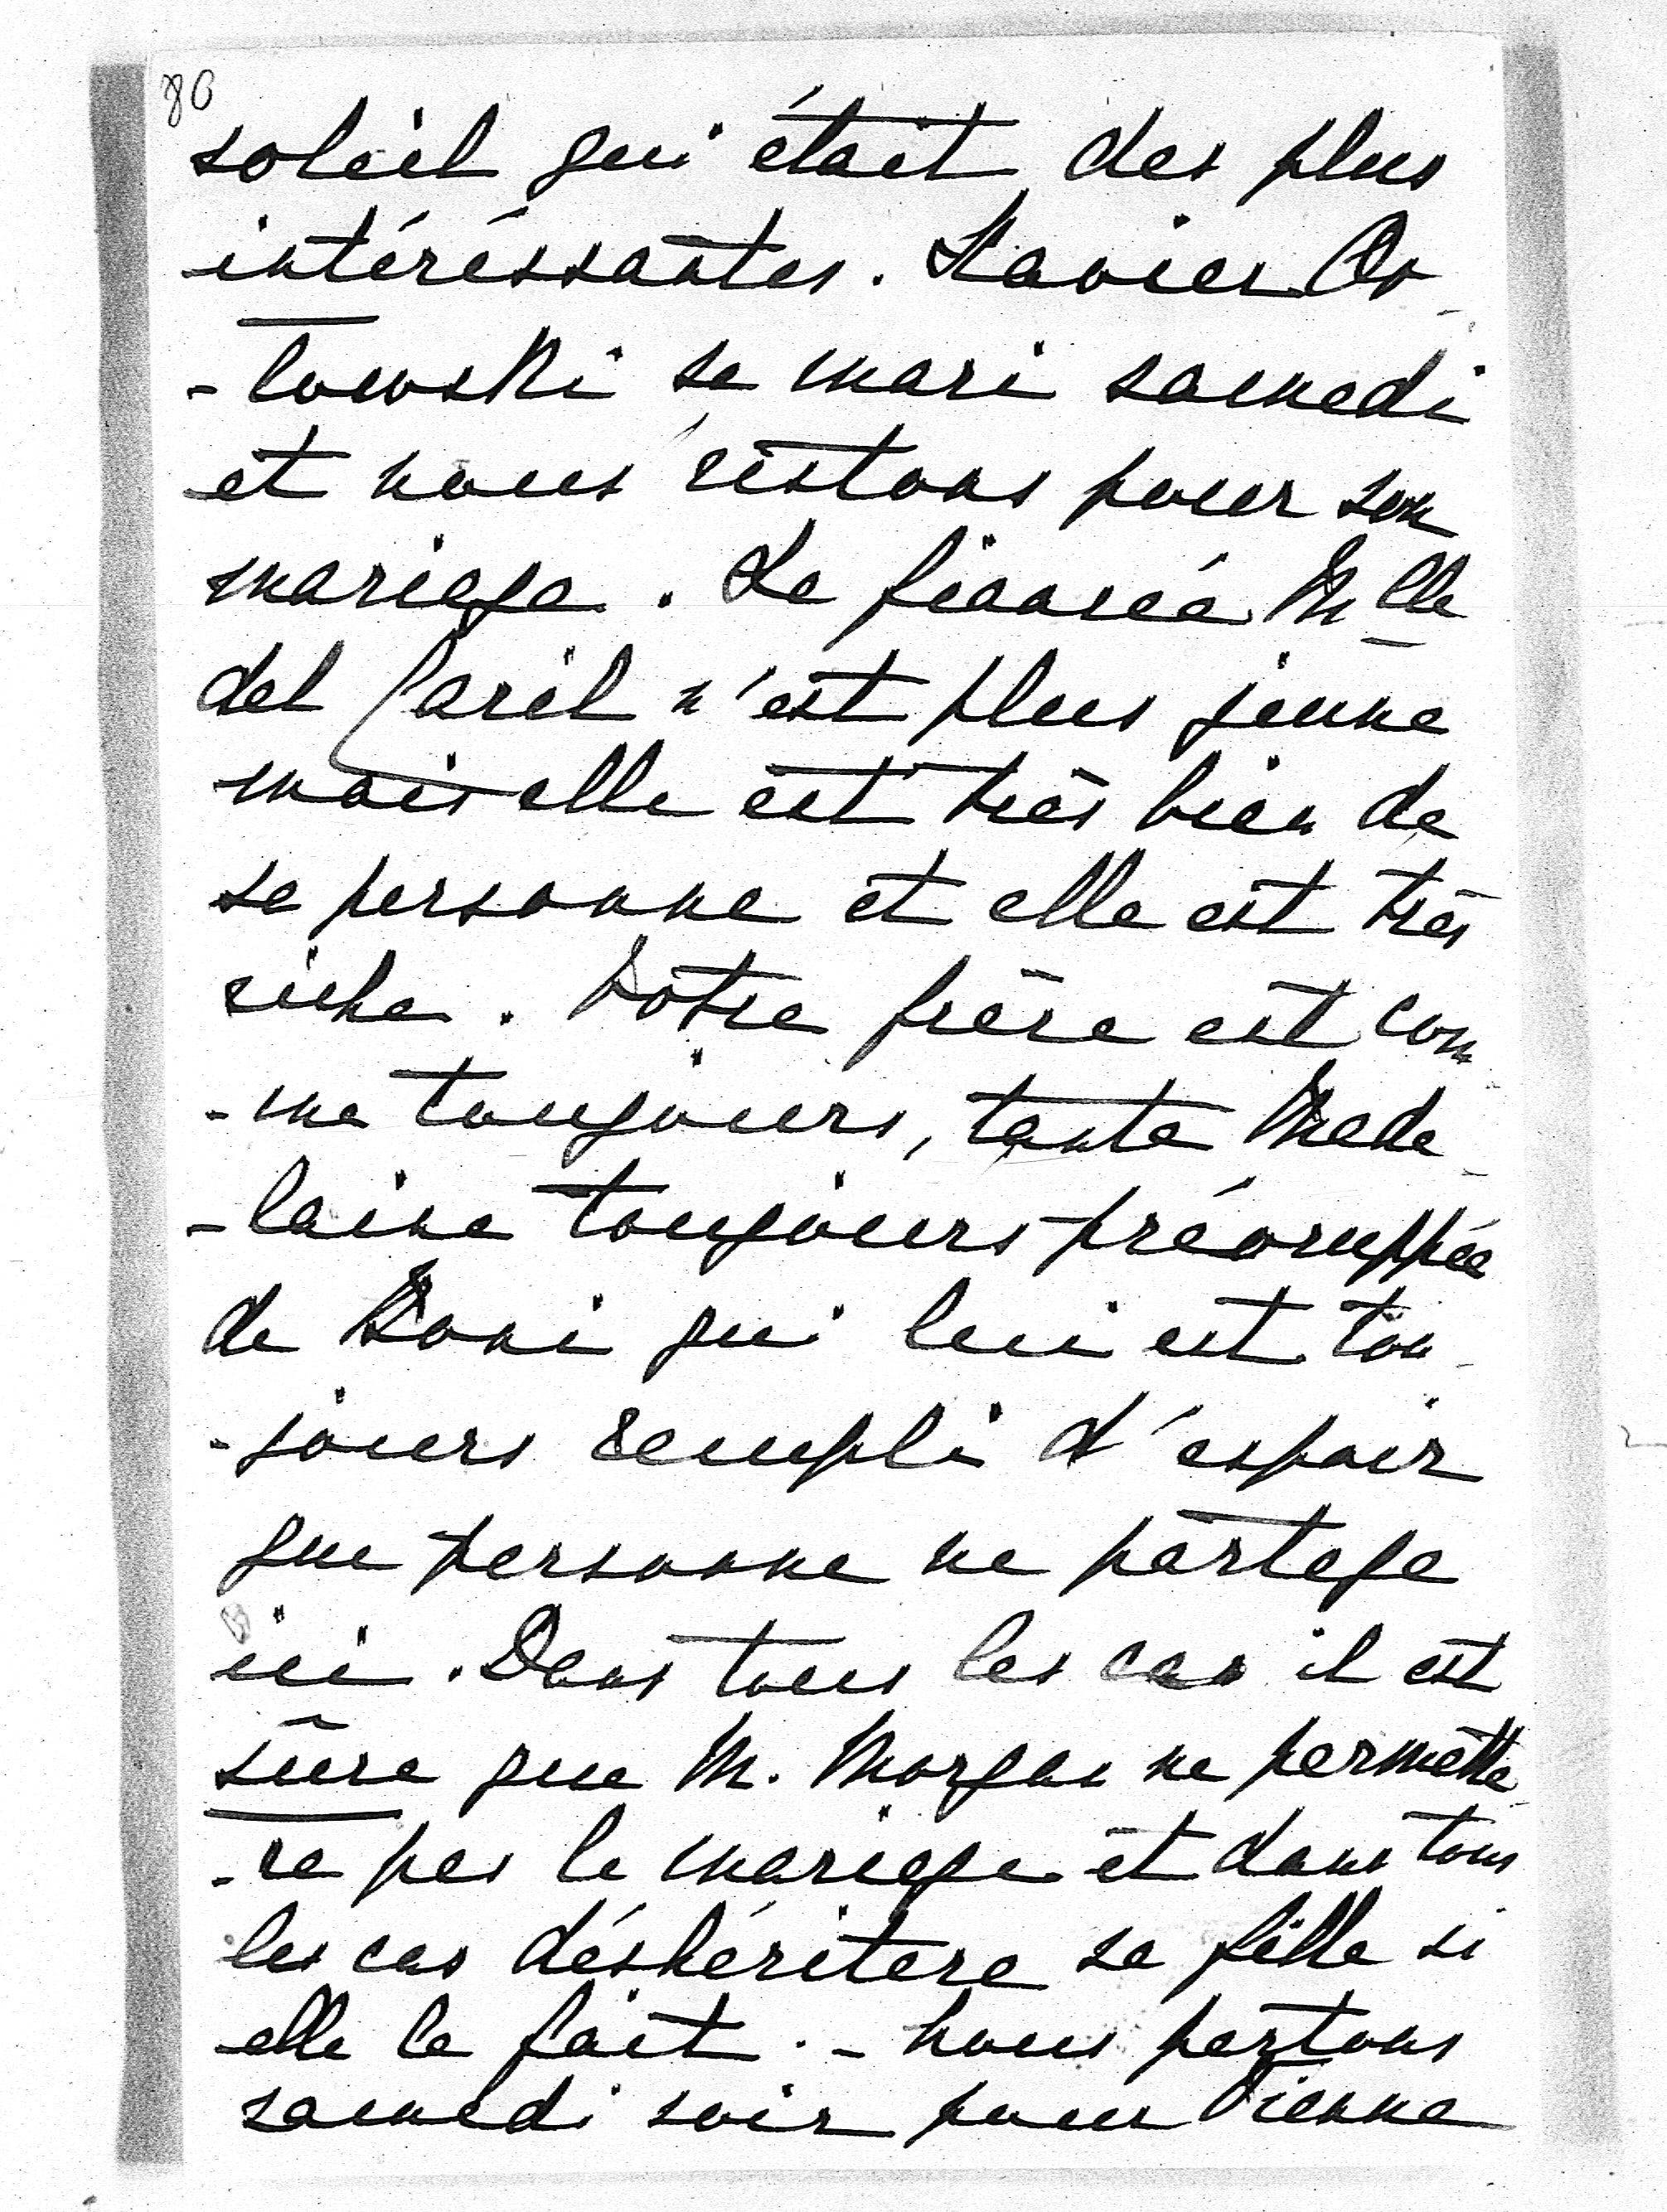 80
soleil qui était des plus
intéréssantes. Xavier Or
-lowski se mari samedi
et nous restons pour son
mariage. La fiancée Mlle
del Caril n'est plus jeune
mais elle est très bien de
sa personne et elle est très
riche. Votre frère est com
-me toujours, tante Made
-laine toujours préocuppée
de Boni qui lui est tou
-jours rempli d'espoir
que personne ne partage
ici. Dans tous les cas il est
sûre que M. Morgan ne permette
-ra pas le mariage et dans tous
les cas déshéritera sa fille si
elle le fait. - Nous partons
samedi soir pour Vienne